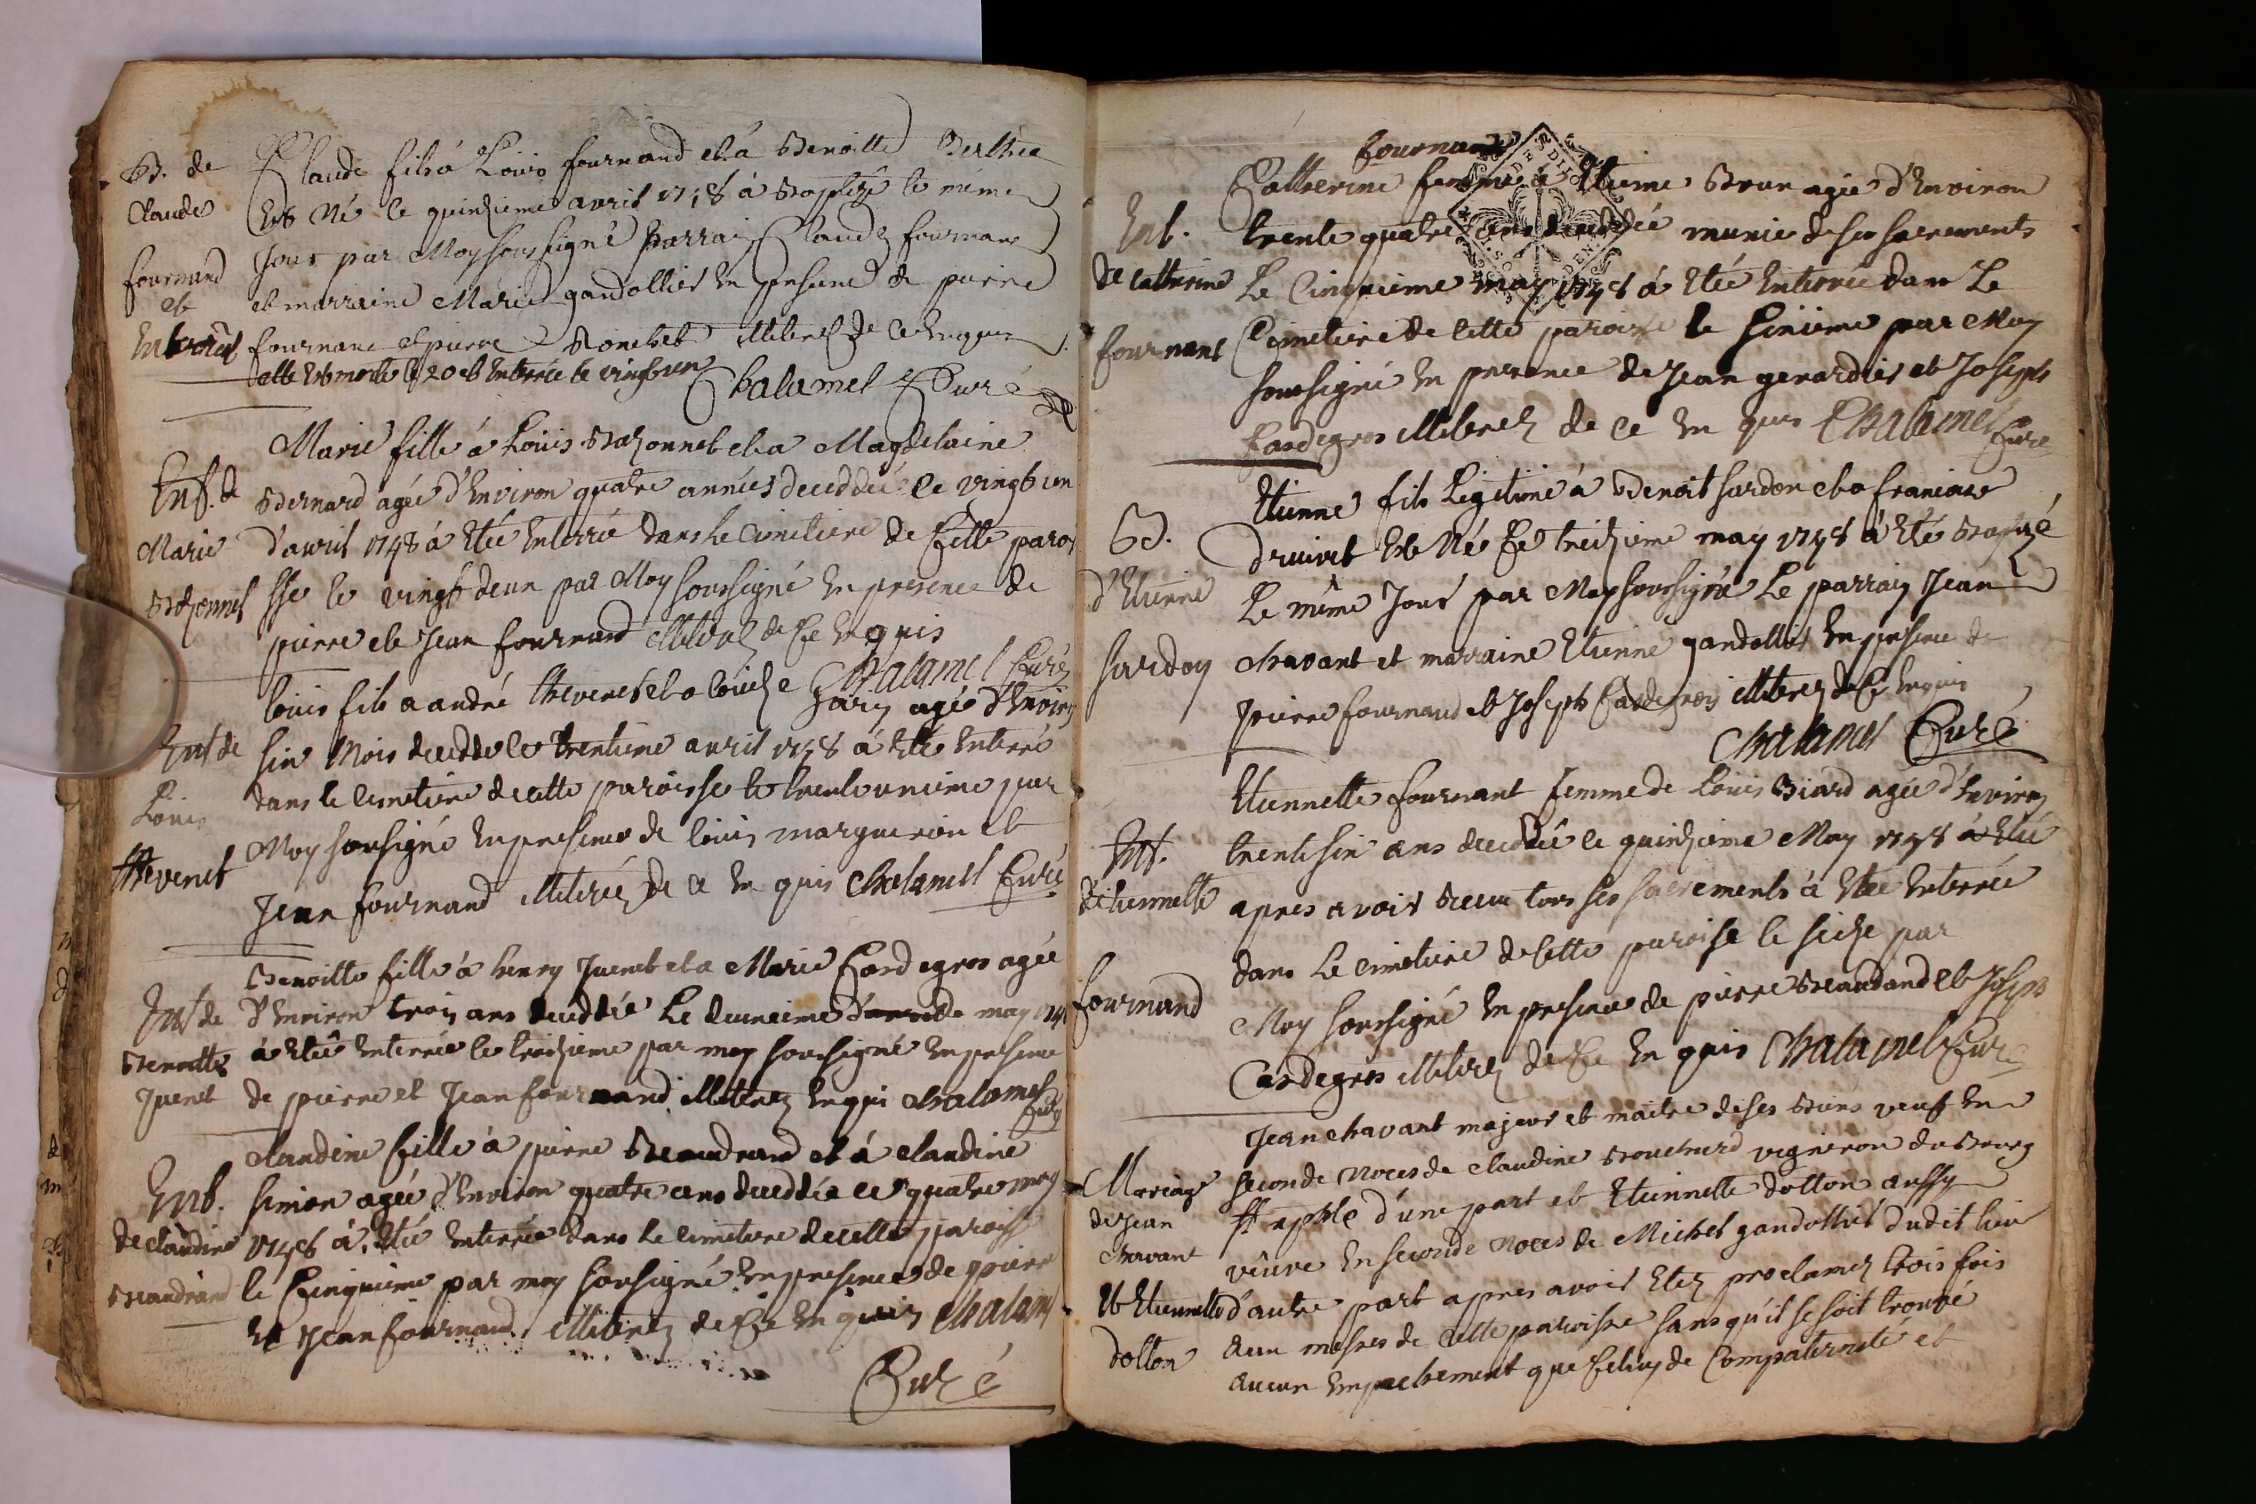 B. de
Claude
fournand
et
Claude fils à Louis fournand et à Benoitte Berthet
Est Né le quinzieme avril 1748 à Baptizé le même
Jour par Moy soussigné Parrain Claude fournand
et marraine Marie gandolliet En presence de pierre
fournand et pierre Bonchet illiterez de Ce Enquis
elle Est morte le 20 et Enterrée le vingt un
Chalamel Curé
Ent. de
Marie
Bazonnet
Marie fille à Louis Bazonnet et a Magdelaine
Bernard agée d'Environ quatre années deceddée le vingt un
d'avril 1748 à Etée Enterrée dans Le Cimetiere de Cette paroi
sse le vingt deux par Moy soussigné En presence de
pierre et Jean fournand illiterez de Ce Enquis
Chalamel Curé
Ent de
Louis
thevenet
louis fils a andré thevenet et a Louise Jarin agée d'Environ
six Mois decedde le trentieme avril 1748 à Etée Enterré
dans le Cimetiere de cette paroisse le trente unieme par
Moy soussigné En presence de louis margueron et
Jean fournand illiterez de Ce En quis Chalamel Curé
Ent de
Benoitte
Juenet
Benoitte fille à henry Juenet et a Marie Cardegros agée
d'Environ trois ans deceddée Le deuxieme de may 1748
à Etée Enterrée le troizieme par moy soussigné En presence
de pierre et Jean fournand illiterez Enqui Chalamel
Curé
Ent.
de claudine
Beaudrand
Claudine fille à pierre Beaudrand et à claudine
simon agée d'Environ quatre ans deceddée le quatre may
1748 à Etée Enterrée dans le Cimetiere de cette paroisse
le Cinquieme par moy soussigné En presence de pierre
et Jean fournand illiterez de Ce En quis Chalamel
Curé
Ent.
de Catherine
fournant
fournand
Catherine femme à Etienne Brun agée d'Environ
trente quatre ans deceddée munie de ses sacrements
Le Cinquieme may 1748 à Etée Enterrée dans Le
Cimetiere de Cette paroisse le sixieme par Moy
soussigné En presence de Jean gerardier et Joseph
Cardegros illiterez de Ce En quis Chalamel Curé
B.
d'Etienne
sardon
Etienne fils Legitime à Benoit sardon et a francoise
druivet Est Né Ce treizieme may 1748 à Eté Baptizé
Le même Jour par Moy soussigné Le parrain Jean
chavant et marraine Etienne gandolliet En presence de
pierre fournand et Joseph Cardegros illiterez de Ce Enquis
Chalamel Curé
Ent.
d'Etiennette
fournand
Etiennette fournant femme de Louis Biard agée d'Environ
trente six ans deceddée le quinzieme May 1748 à Etée
apres avoir Receu tous ses sacrements à Etée Enterrée
dans Le Cimetiere de Cette paroisse le seize par
Moy soussigné En presence de pierre Beaudrand et Joseph
Cardegros illiterez de Ce En quis Chalamel Curé
Mariage
de Jean
Chavant
Et Etiennette
dolton
Jean Chavant majeur et maitre de ses Biens veuf En
seconde Noces de claudine Bouchard vigneron du Bourg
d'une part et Etiennette dolton aussy
veuve En seconde Noces de Michel gandolliet dudit lieu
d'autre part apres avoir Etez proclamez trois fois
aux messes de Cette paroisse sans qu'il se soit trouvé
aucun Empechement que Celuy de Compaternité et